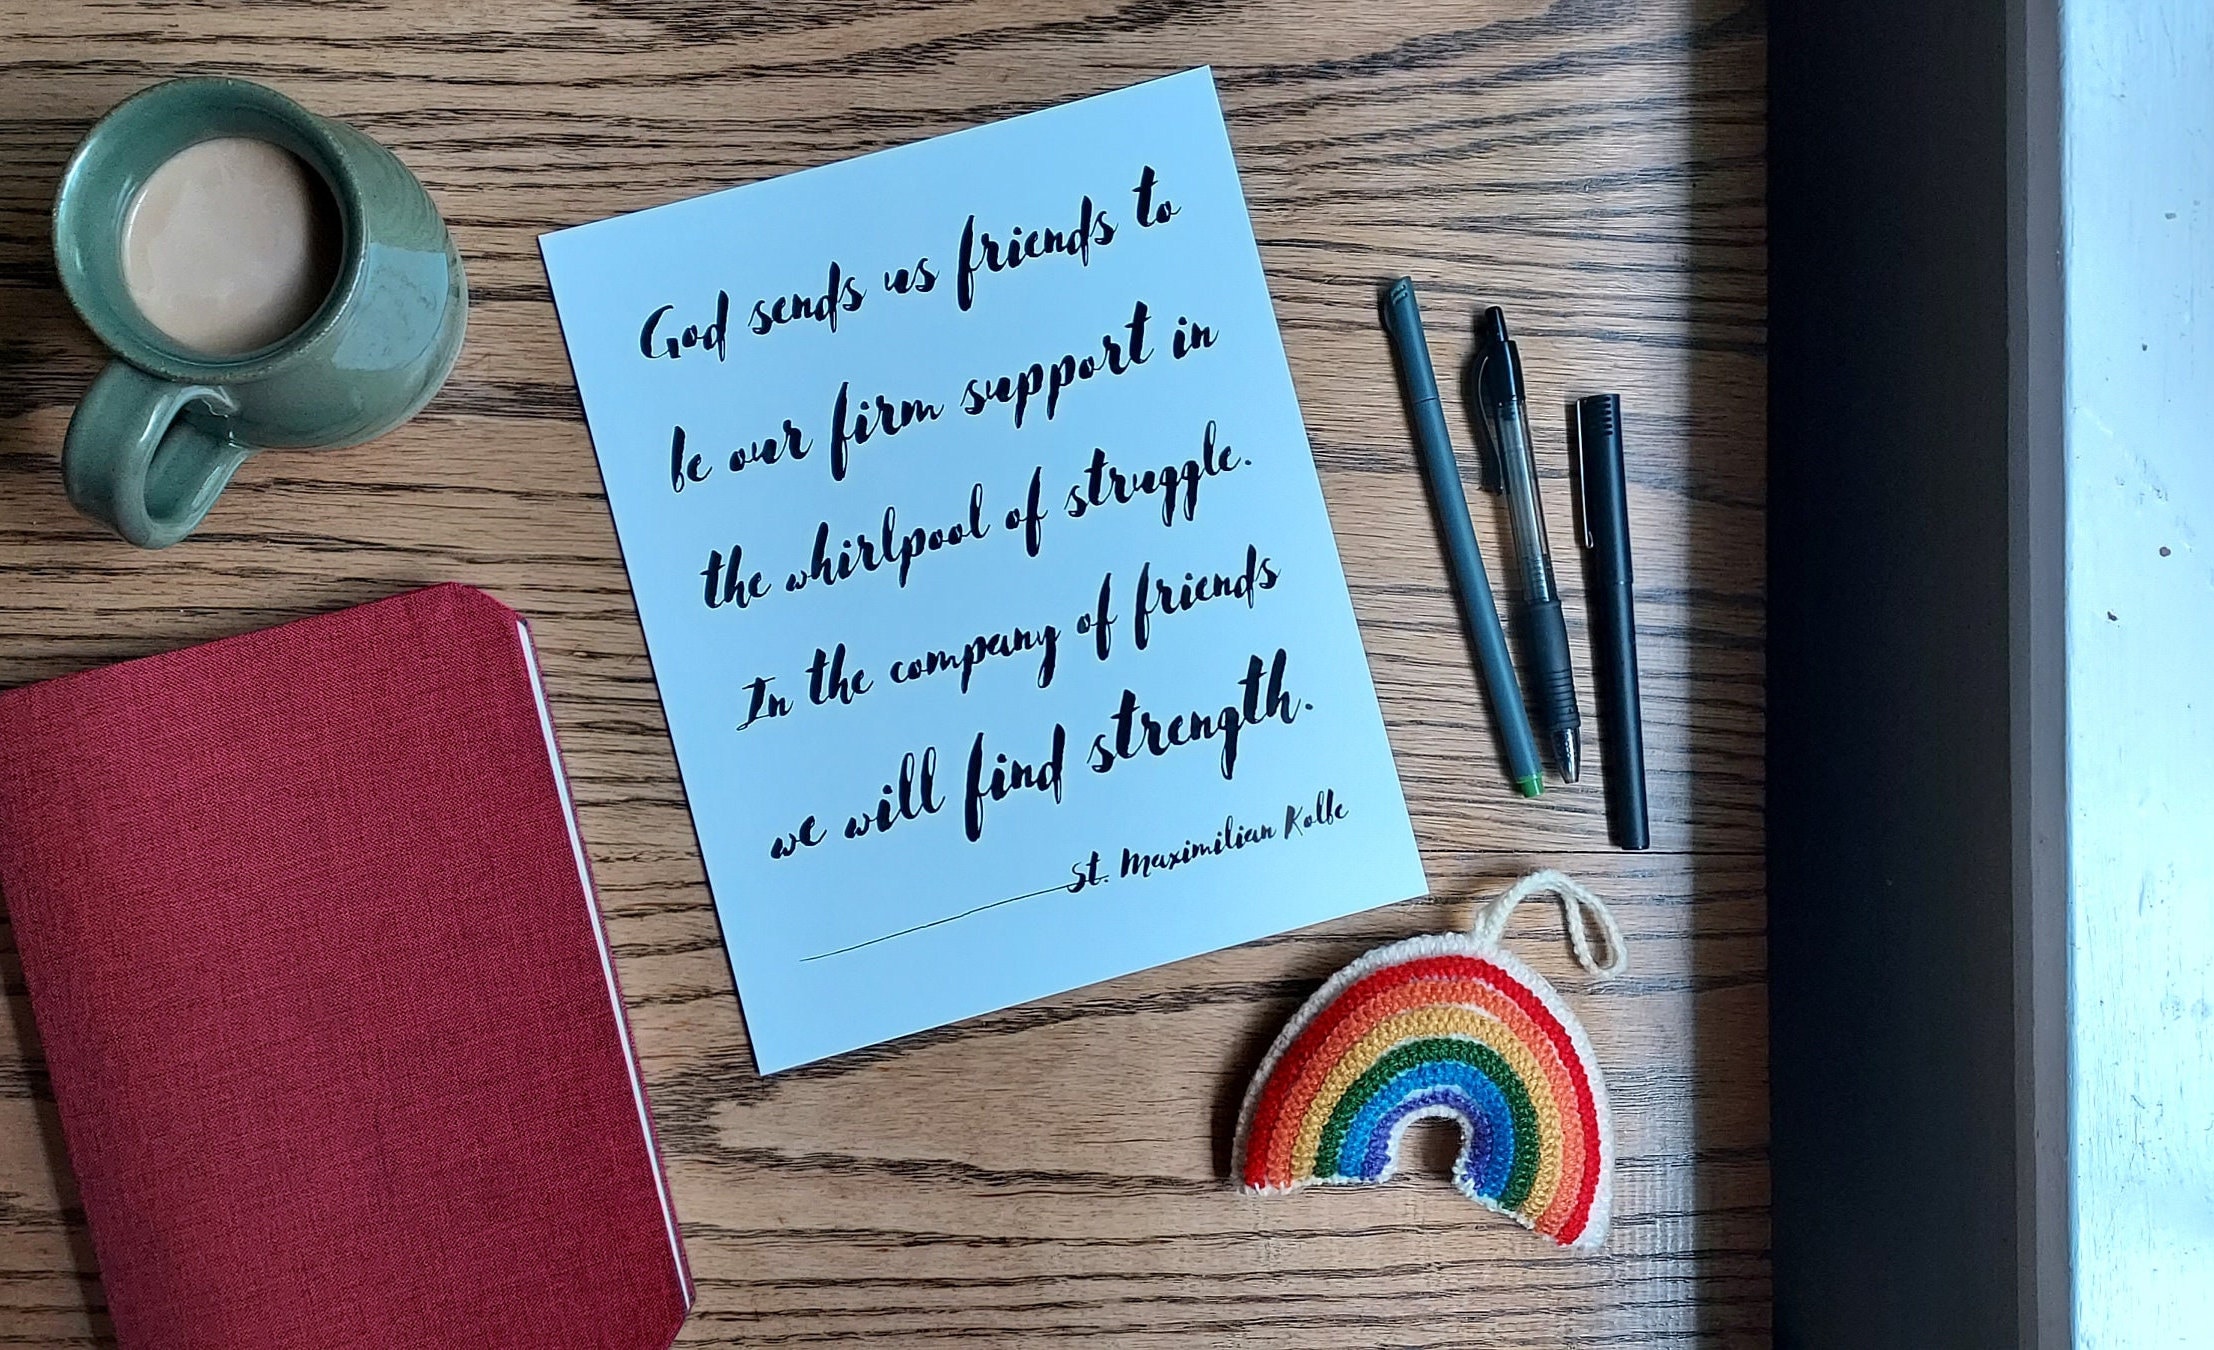 God sends us friends to
be our firm support in
the whirlpool of struggle.
In the company of friends
we will find strength.
St. Maximilian Kolbe